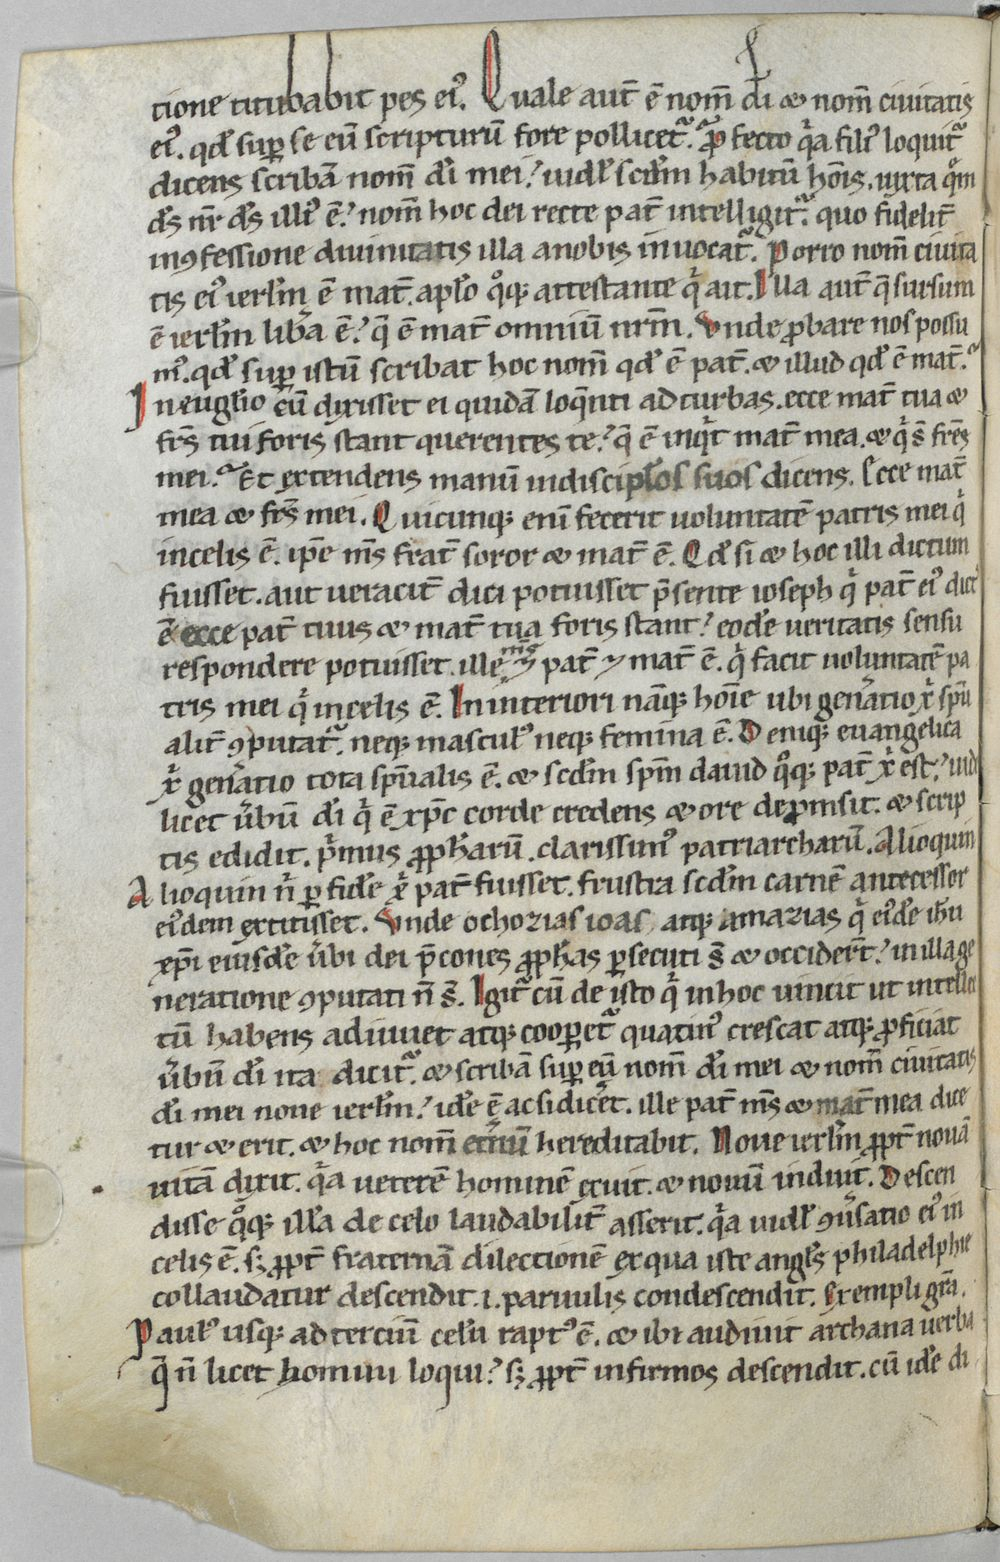 tione titubabit pes ei᾽. Quale aut̄ ē nom̄ di & nom̄ ciuitatis
ei᾽. qd̕ sup̱ se eū scripturū fore pollicet᷑. ꝓfecto qͥa fili᾽ loquit᷑
dicens scribā nom̄ dī mei? uidl̕ scdm̄ habitū hoīs. iuxta qͦm
ds̄ nr̄ ds̄ illi᾽ ē? nom̄ hoc dei recte pat̄ intelligit᷑. quo fidelit̄
in ꝯfessione diuinitatis illa anobis inuocat᷑. Porro nom̄ ciuita
tis ei᾽ ierl̄m ē mat̄. apl̄o qͦꝗ attestante qͥ ait. Illa aut̄ q̄ sursum
ē ierl̄m lib̄a ē? q̄ ē mat̄ omniū nr̄m. Vnde ꝓbare nos possu
m᾽. qd̕ sup̱ istū scribat hoc nom̄ qd̕ ē pat̄. & illud qd̕ ē mat̄.
In euḡlio cū dixisset ei quidā loq̄nti ad turbas. ecce mat̄ tua &
frs̄ tui foris stant querentes te? q̄ ē inqͥt mat̄ mea. & qͥ s̄ frēs
mei? Et extendens manū in discipl̄os suos dicens. Ecce mat̄
mea & frs̄ mei. Quicunqꝫ enī fecerit uoluntatē patris mei qͥ
in celis ē. ipē ms̄ frat̄ soror & mat̄ ē. Qd̕ si & hoc illi dictum
fuisset. aut ueracit̄ dici potuisset p̄sente ioseph qͥ pat̄ ei᾽ dict᾽
ē ecce pat̄ tuus & mat̄ tua foris stant? eodē ueritatis sensu
respondere potuisset. ille ms̄ ⁊ pat̄ ⁊ mat̄ ē. qͥ facit uoluntatē pa
tris mei qͥ in celis ē. In interiori nāqꝫ hoīe ubi gen̄atio xͥ spū
alit̄ ꝯputat᷑. neqꝫ mascul᾽ neqꝫ femina ē. Deniqꝫ euangelica
xͥ gen̄atio tota spūalis ē. & scdm̄ spm̄ dauid qͦꝗ pat̄ xͥ est? uide
licet ūbū dī qͥ ē xp̄c corde credens & ore deprmsit. & scrip
tis edidit. pͥmus ꝓph̄arū. clarissim᾽ patriarcharū. Alioquin
Alioquin nͥ ꝑ fidē xͥ pat̄ fuisset. frustra scdm̄ carnē antecessor
ei᾽dem extitisset. Vnde ochozias ioas atqꝫ amazias qͥ ei᾽dē ih̄u
xp̄i eiusdē ūbi dei p̄cones ꝓph̄as ꝑsecuti s̄ & occiderūt? in illa ge
neratione ꝯputati n̄ s̄. Igit᷑ cū de isto qͥ in hoc uincit ut intellec
tū habens adiuuet atqꝫ cooꝑet᷑ quatin᾽ crescat atqꝫ ꝓficiat
ūbū dī ita dicit᷑. & scribā sup̱ eū nom̄ dī mei & nom̄ ciuitatis
dī mei noue ierl̄m? idē ē ac si dic̄et. ille pat̄ ms̄ & mat̄ mea dice
tur & erit. & hoc nom̄ et̄nū hereditabit. Noue ierl̄m ꝓpt̄ nouā
uitā dicit. qͥa ueterē hominē exuit. & nouū induit. Descen
disse qͦꝗ illā de celo laudabilit̄ asserit. qͥa uidl̕ ꝯūsatio ei᾽ in
celis ē. sꝫ ꝓpt̄ fraternā dilectionē ex qua iste angl̄s philadelphie
collaudatur descendit. i. paruulis condescendit. Exempli gr̄a.
Paul᾽ usqꝫ ad terciū celū rapt᾽ ē. & ibi audiuit archana uerba
q̄ n̄ licet homini loqui? sꝫ ꝓpt̄ infirmos descendit. cū idē di